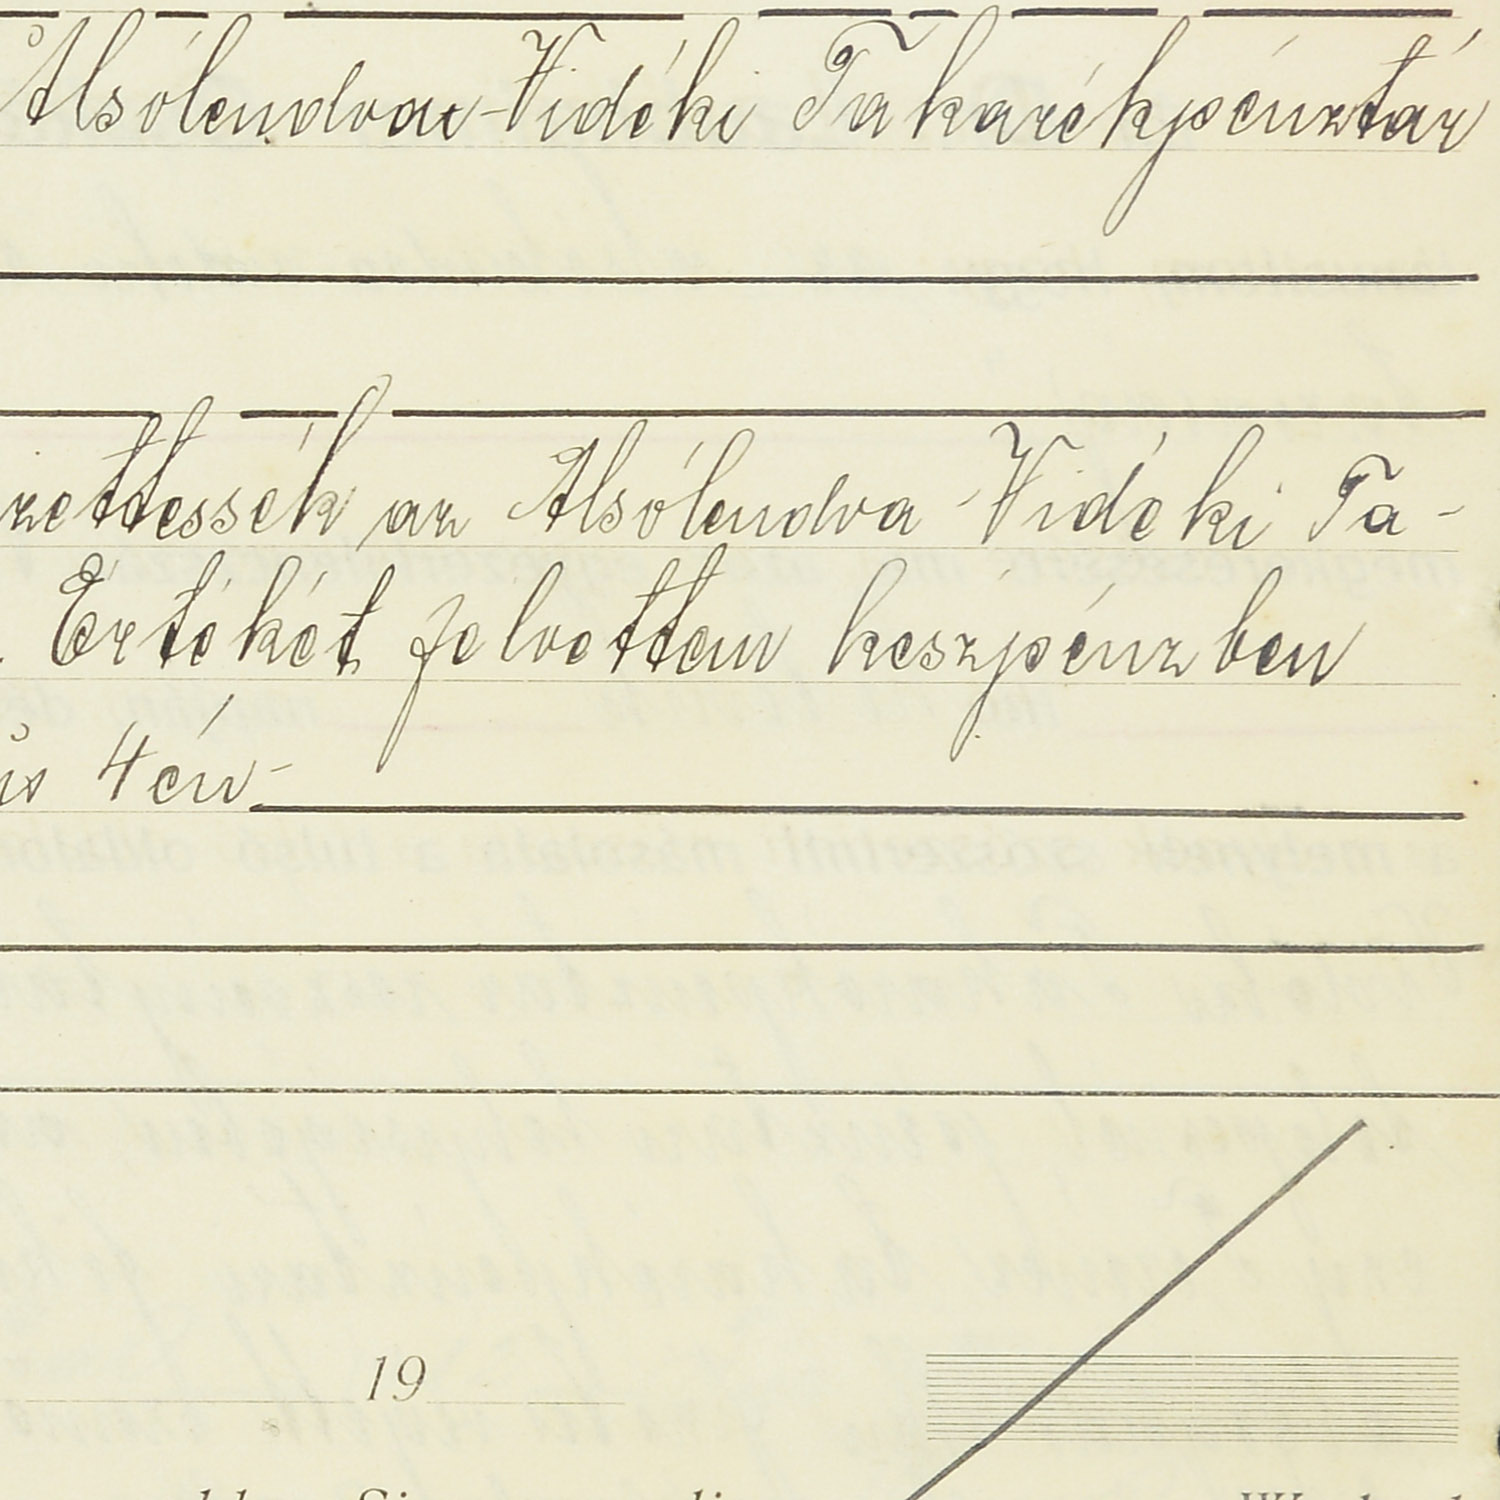 Alsólendva-Vidéki Takarékpénztár
zettessék az Alsólendva-Vidéki Ta-
Értékét felvettem keszpénzben
us 4én-
19